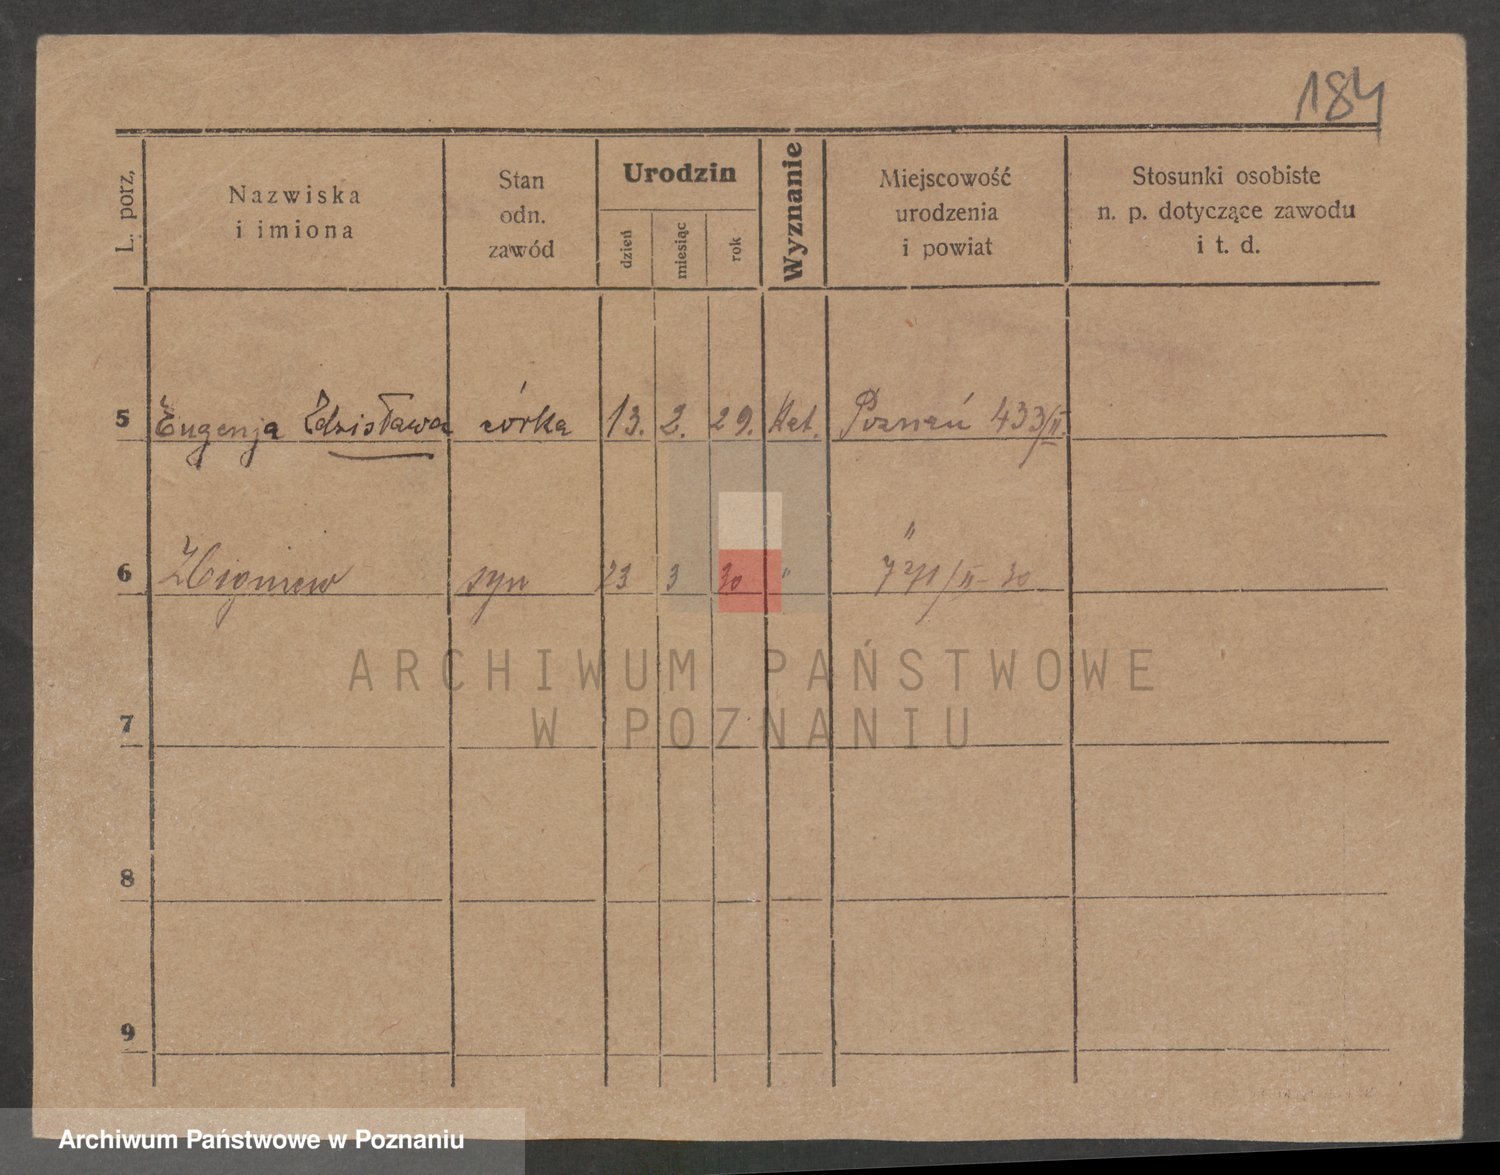 184
L. porz,
Nazwiska
i imiona
Stan
odn.
zawód
Urodzin
dzień
miesiąc
rok
Wyznanie
Miejscowość
urodzenia
i powiat
Stosunki osobiste
n. p. dotyczące zawodu
i t. d.
5 Eugenja Zdzisława córka 13. 2. 29. Kat. Poznań 433/II.
6 Zbigniew syn 23 3 30 " "
7
8
9
ARCHIWUM PAŃSTWOWE
W POZNANIU
Archiwum Państwowe w Poznaniu